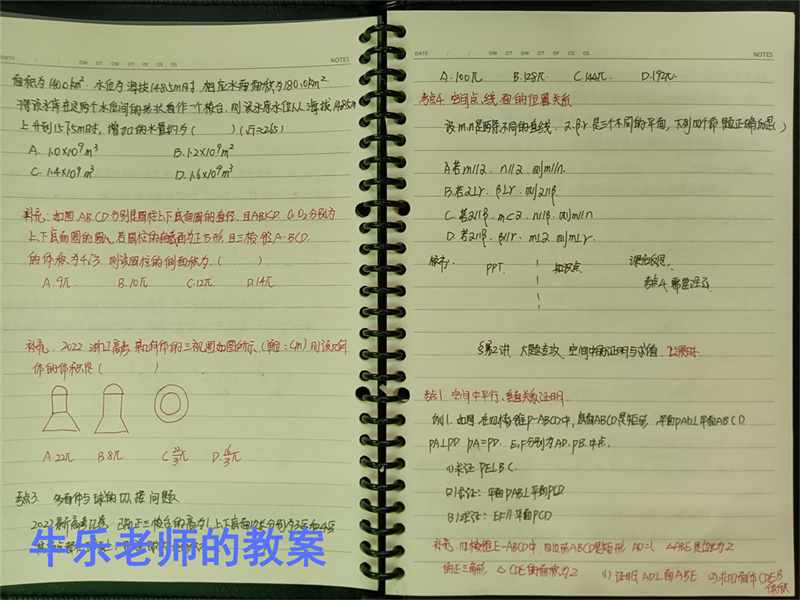 DATE / / OM OT OW OT OF OS OS NOTES
面积为140.0km². 水位为海拔148.5m时. 相应水面面积为180.0km²
将该水库在这两个水位间的形状看作一个棱台. 则该水库水位从海拔148.5m
上升到157.5m时, 增加的水量约为 ( ) (√7≈2.65)
A. 1.0×10⁹m³ B. 1.2×10⁹m³
C. 1.4×10⁹m³ D. 1.6×10⁹m³
补充. 如图 AB. CD分别是圆柱上、下底面圆的直径 且AB⊥CD O₁ O₂分别为
上、下底面圆的圆心 若圆柱的轴截面为正方形 且三棱锥A-BCD.
的体积为4√3 则该圆柱的侧面积为. ( )
A. 9π B. 10π C. 12π D. 14π
补充. 2022 浙江高考 某几何体的三视图如图所示 (单位: cm) 则该几何
体的体积是 ( )
A. 22π B. 8π C. 22/3 π D. 16/3 π
考点3. 多面体与球的切、接问题
2022新高考Ⅱ卷 已知正三棱台的高为1 上下底面边长分别为3√3和4√3
牛乐老师的教案
DATE / / OM OT OW OT OF OS OS NOTES
A. 100π B. 128π C. 144π D. 192π.
考点4. 空间点、线、面的位置关系
设m. n是两条不同的直线. α. β. γ是三个不同的平面, 下列四个命题正确的是( )
A. 若m∥α. n∥α. 则m∥n.
B. 若α⊥γ. β⊥γ. 则α∥β
C. 若α∥β. m⊂α. n∥β. 则m∥n
D. 若α∥β. β∥γ. m⊥α. 则m⊥γ.
板书: PPT. 知识点. 课后反思.
考点4. 需要
第2讲. 大题专攻. 空间中的证明与求值. 12课时.
考点1. 空间中平行、垂直关系证明.
例1. 如图 在四棱锥P-ABCD中, 底面ABCD是矩形. 平面PAD⊥平面ABCD
PA⊥PD. PA=PD. E、F分别为AD. PB. 中点.
(1)求证 PE⊥BC.
(2)求证: 平面PAB⊥平面PCD
(3)求证: EF∥平面PCD
补充. 四棱锥E-ABCD中 四边形ABCD是矩形, AD=1 △ABE是边长为2
的正三角形, △CDE的面积为2. (1)证明AD⊥面ABE (2)求四面体CDEB
体积